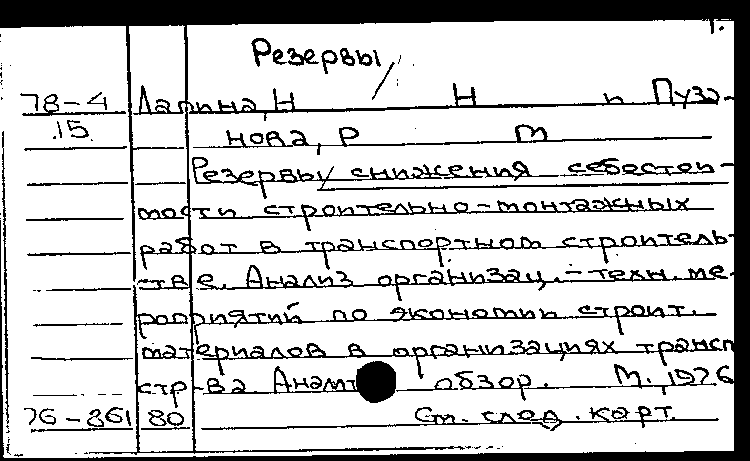 1.
Резервы
78-4 Ларина, Н Н и Пуза-
15 нова, Р М
Резервы снижения себестои-
мости строительно-монтажных
работ в транспортном строитель-
стве. Анализ организац.-техн. ме-
роприятий по экономии строит.
материалов в организациях трансп
стр-ва Аналит обзор. М., 1976
76-861 80 См. след. карт.